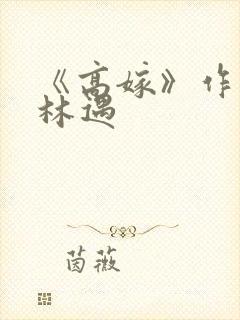 《高嫁》作
林遇
茵薇